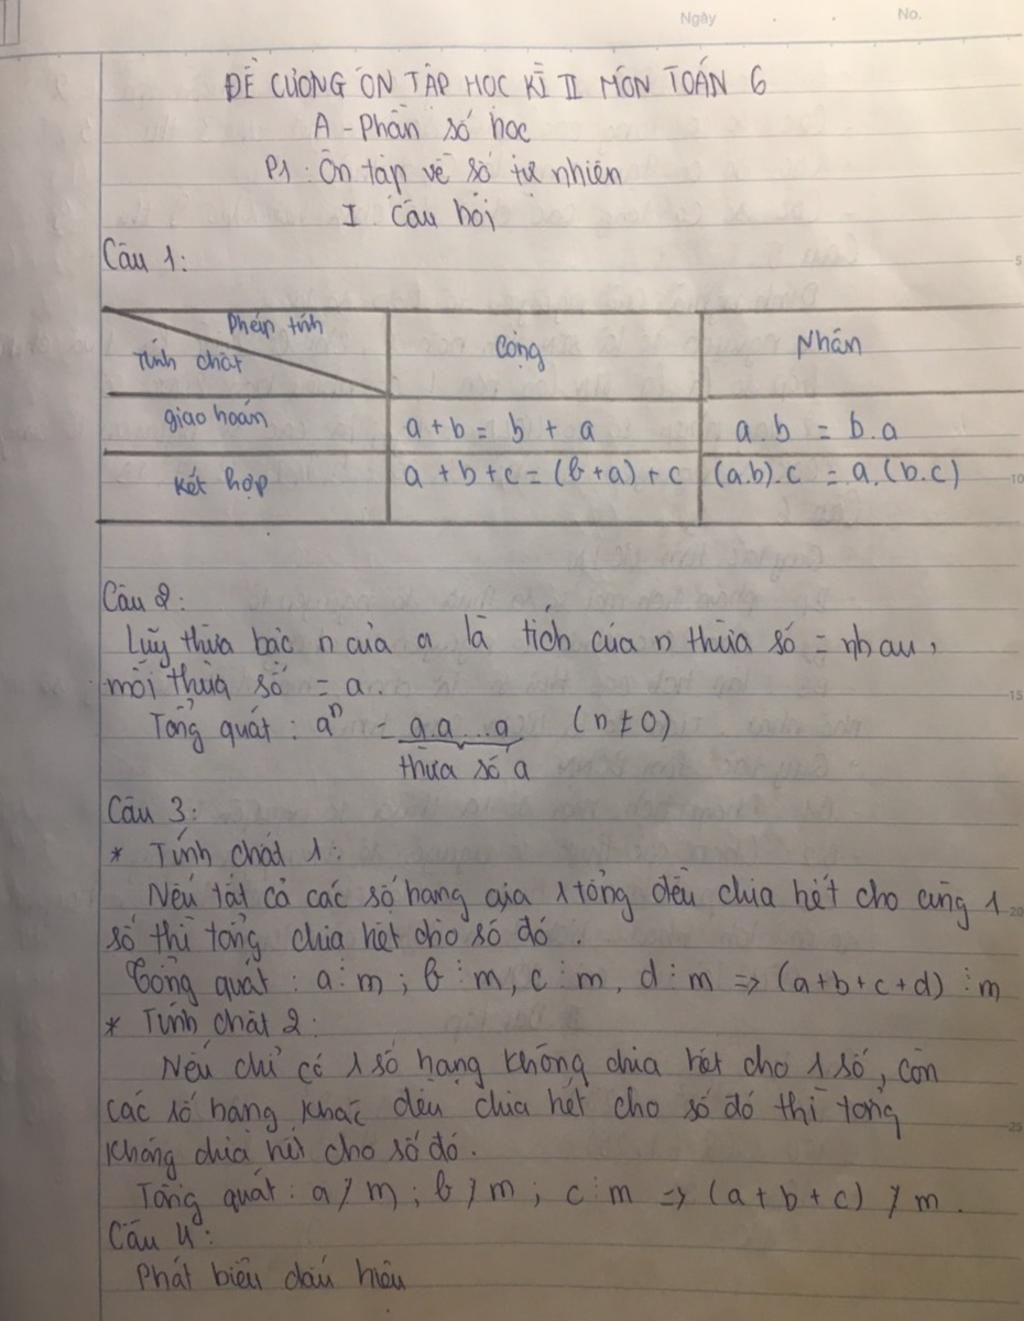 Ngày . . No.
ĐỀ CƯƠNG ÔN TẬP HỌC KÌ II MÔN TOÁN 6
A - Phần số học
P1: Ôn tập về số tự nhiên
I Câu hỏi
Câu 1:
Phép tính
Tính chất
Cộng
Nhân
giao hoán
a + b = b + a
a.b = b.a
Kết hợp
a + b + c = (b + a) + c
(a.b).c = a.(b.c)
Câu 2:
Luỹ thừa bậc n của a là tích của n thừa số = nhau,
mỗi thừa số = a.
Tổng quát: aⁿ = a.a...a (n ≠ 0)
thừa số a
Câu 3:
* Tính chất 1:
Nếu tất cả các số hạng của 1 tổng đều chia hết cho cùng 1
số thì tổng chia hết cho số đó.
Tổng quát: a ⋮ m; b ⋮ m, c ⋮ m, d ⋮ m => (a+b+c+d) ⋮ m
* Tính chất 2:
Nếu chỉ có 1 số hạng không chia hết cho 1 số, còn
các số hạng khác đều chia hết cho số đó thì tổng
không chia hết cho số đó.
Tổng quát: a ⋮̸ m; b ⋮̸ m; c ⋮ m => (a + b + c) ⋮̸ m.
Câu 4:
Phát biểu dấu hiệu
5
10
15
20
25